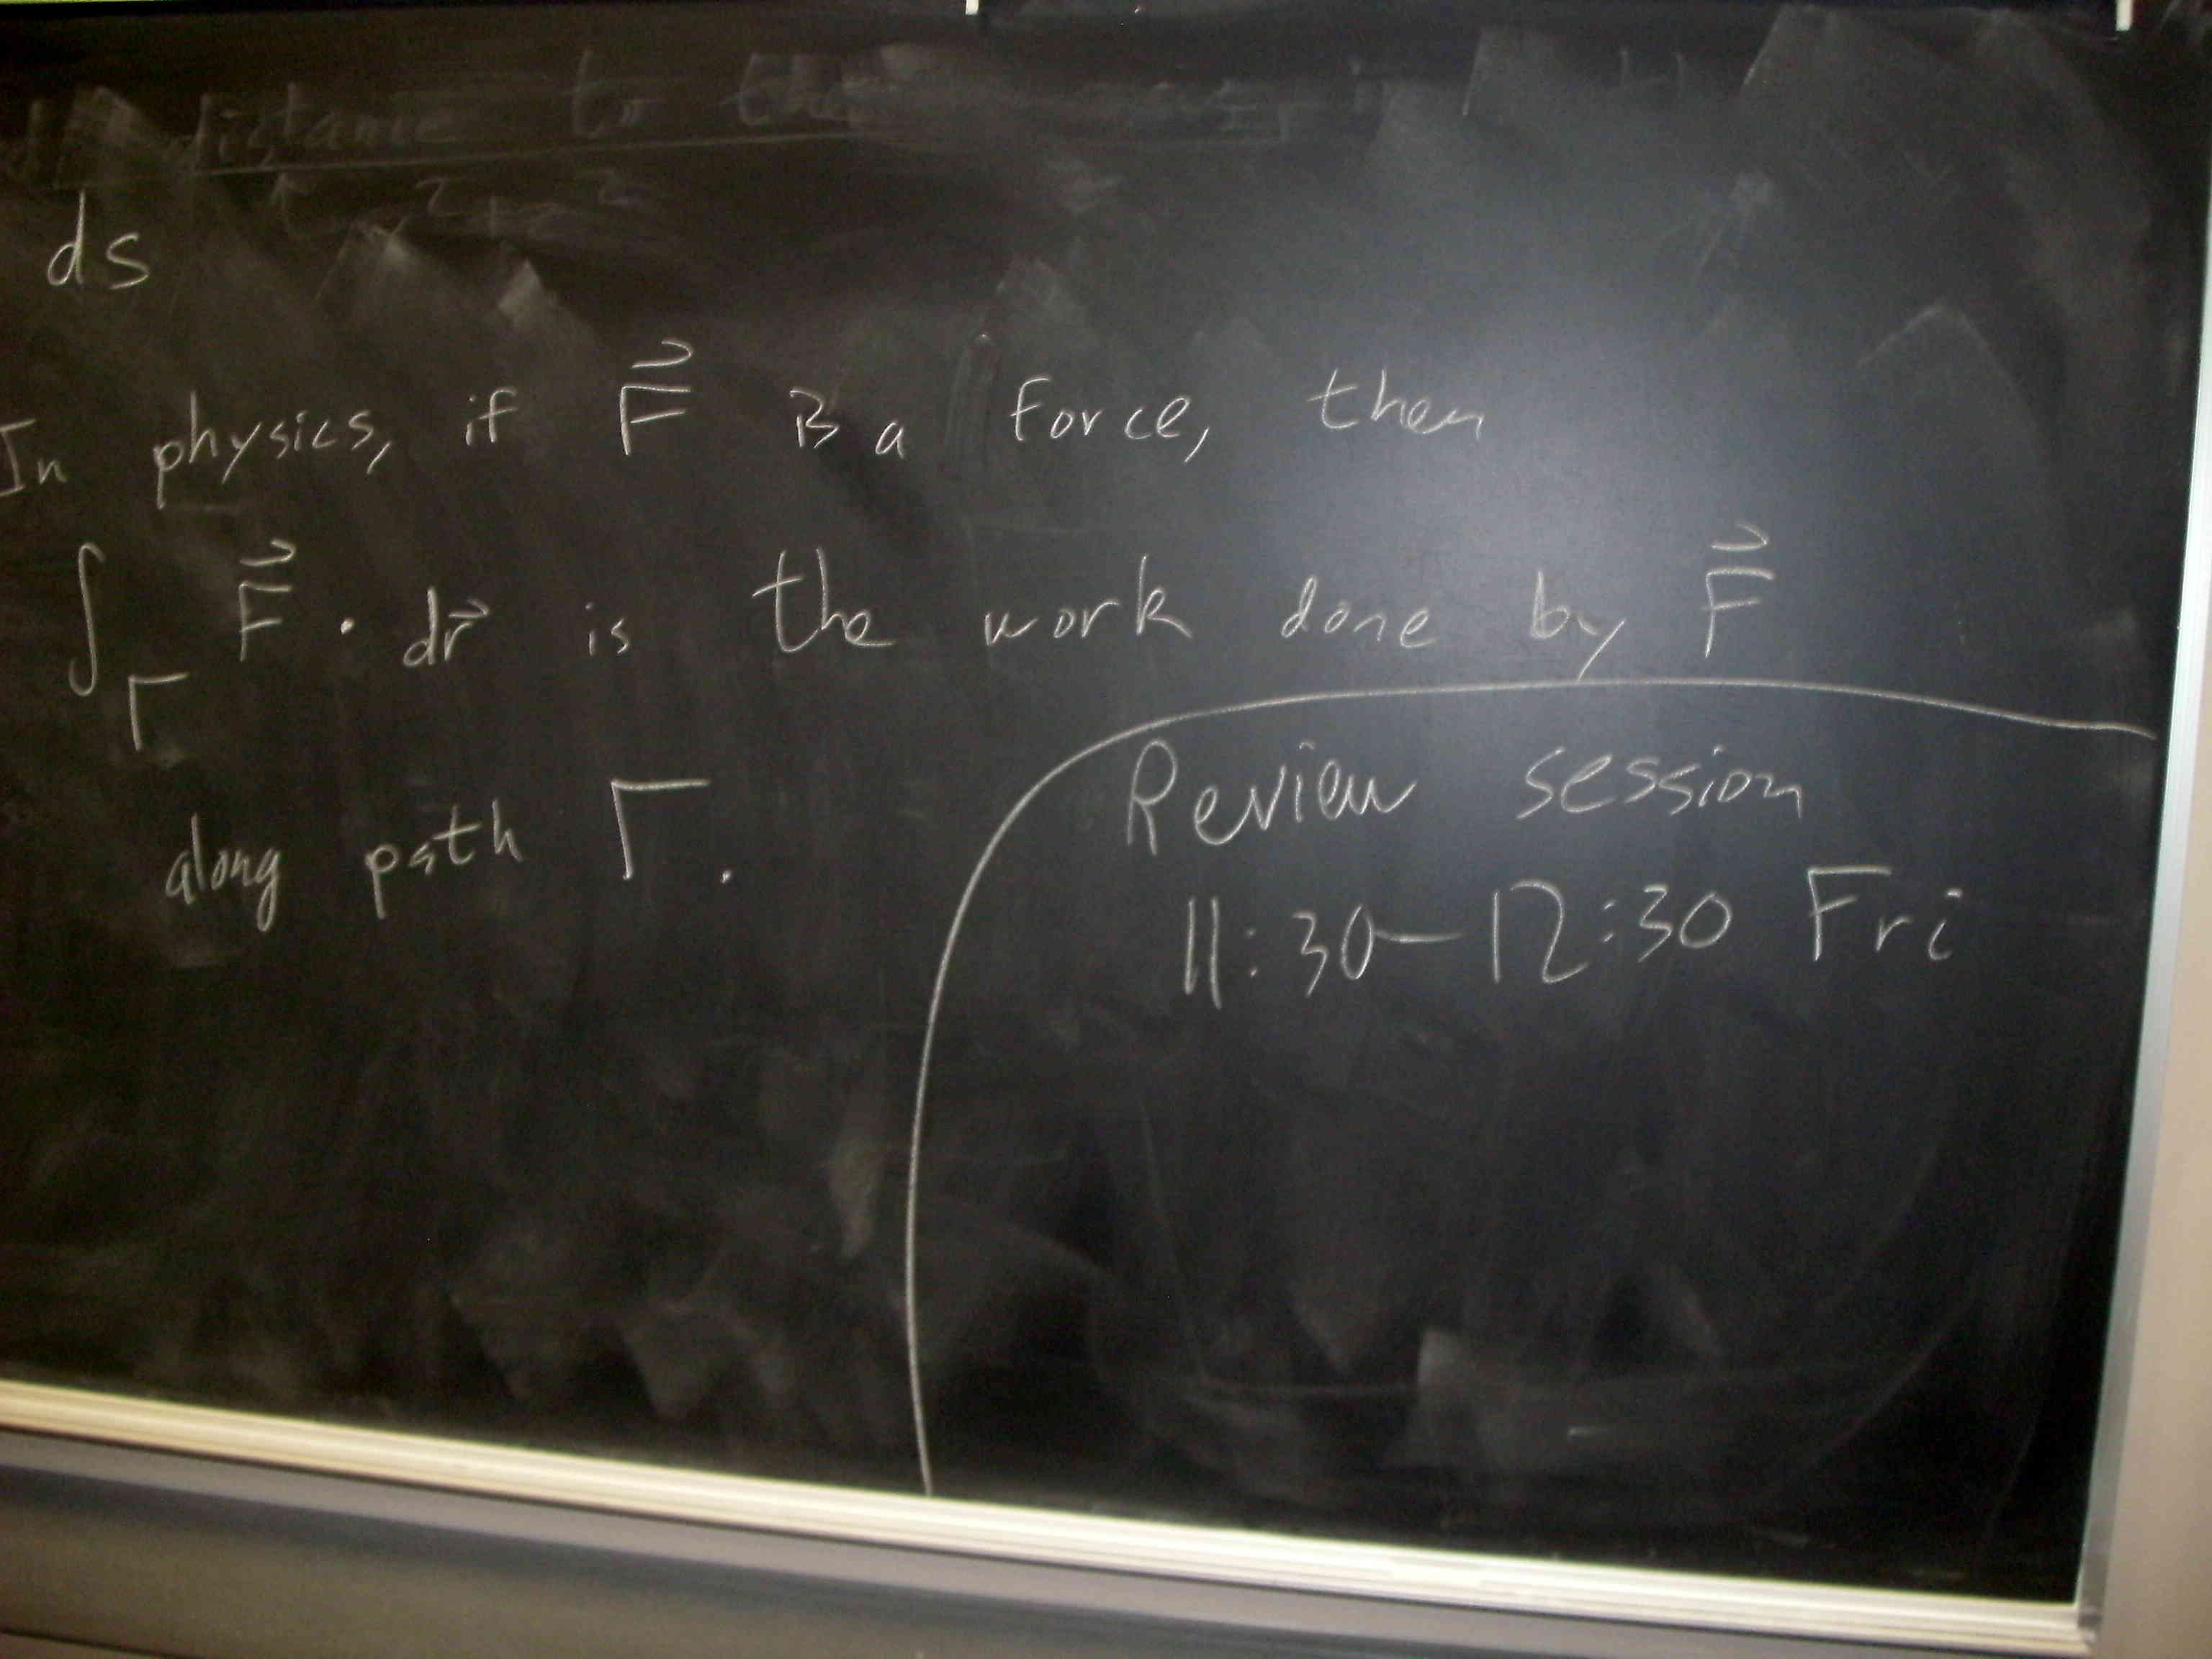 distance to the
ds
In physics, if F⃗ is a force, then
∫_Γ F⃗ · dr⃗ is the work done by F⃗
along path Γ.
Review session
11:30-12:30 Fri